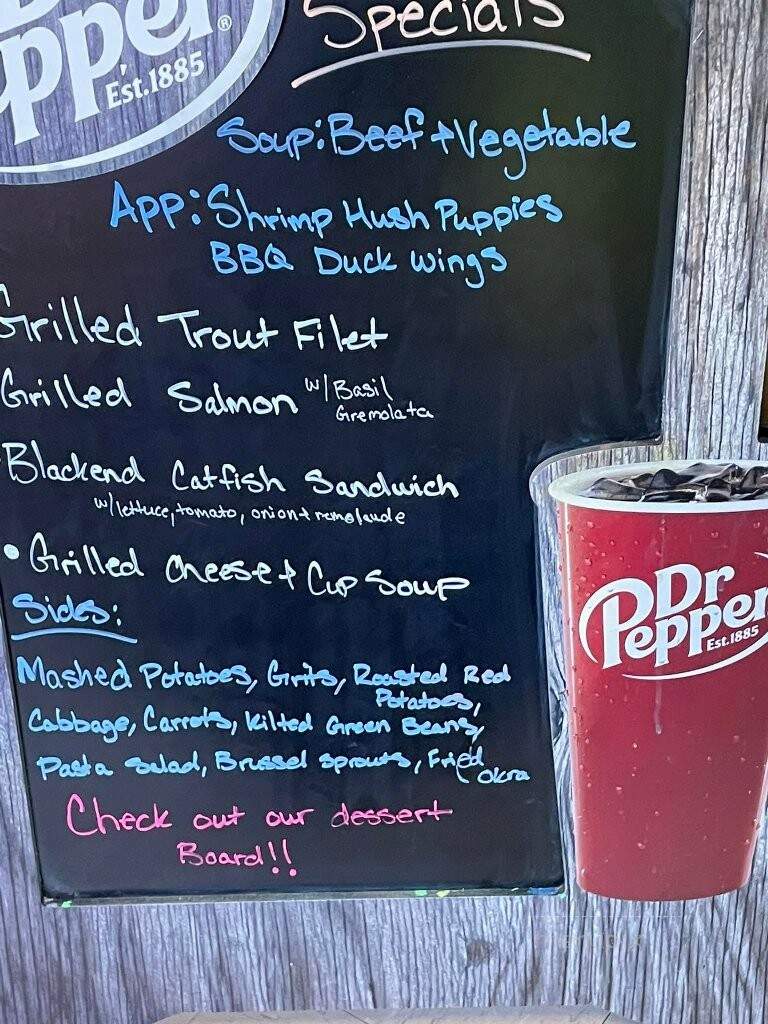 Dr
Pepper
®
Est.1885
Specials
Soup: Beef + Vegetable
App: Shrimp Hush Puppies
BBQ Duck Wings
Grilled Trout Filet
Grilled Salmon w/Basil
Gremolata
Blackend Catfish Sandwich
w/lettuce, tomato, onion + remolaude
• Grilled Cheese + Cup Soup
Sides:
Mashed Potatoes, Grits, Roasted Red
Potatoes,
Cabbage, Carrots, Kilted Green Beans,
Pasta Salad, Brussel Sprouts, Fried
Okra
Check out our dessert
Board!!
Dr
Pepper
Est.1885